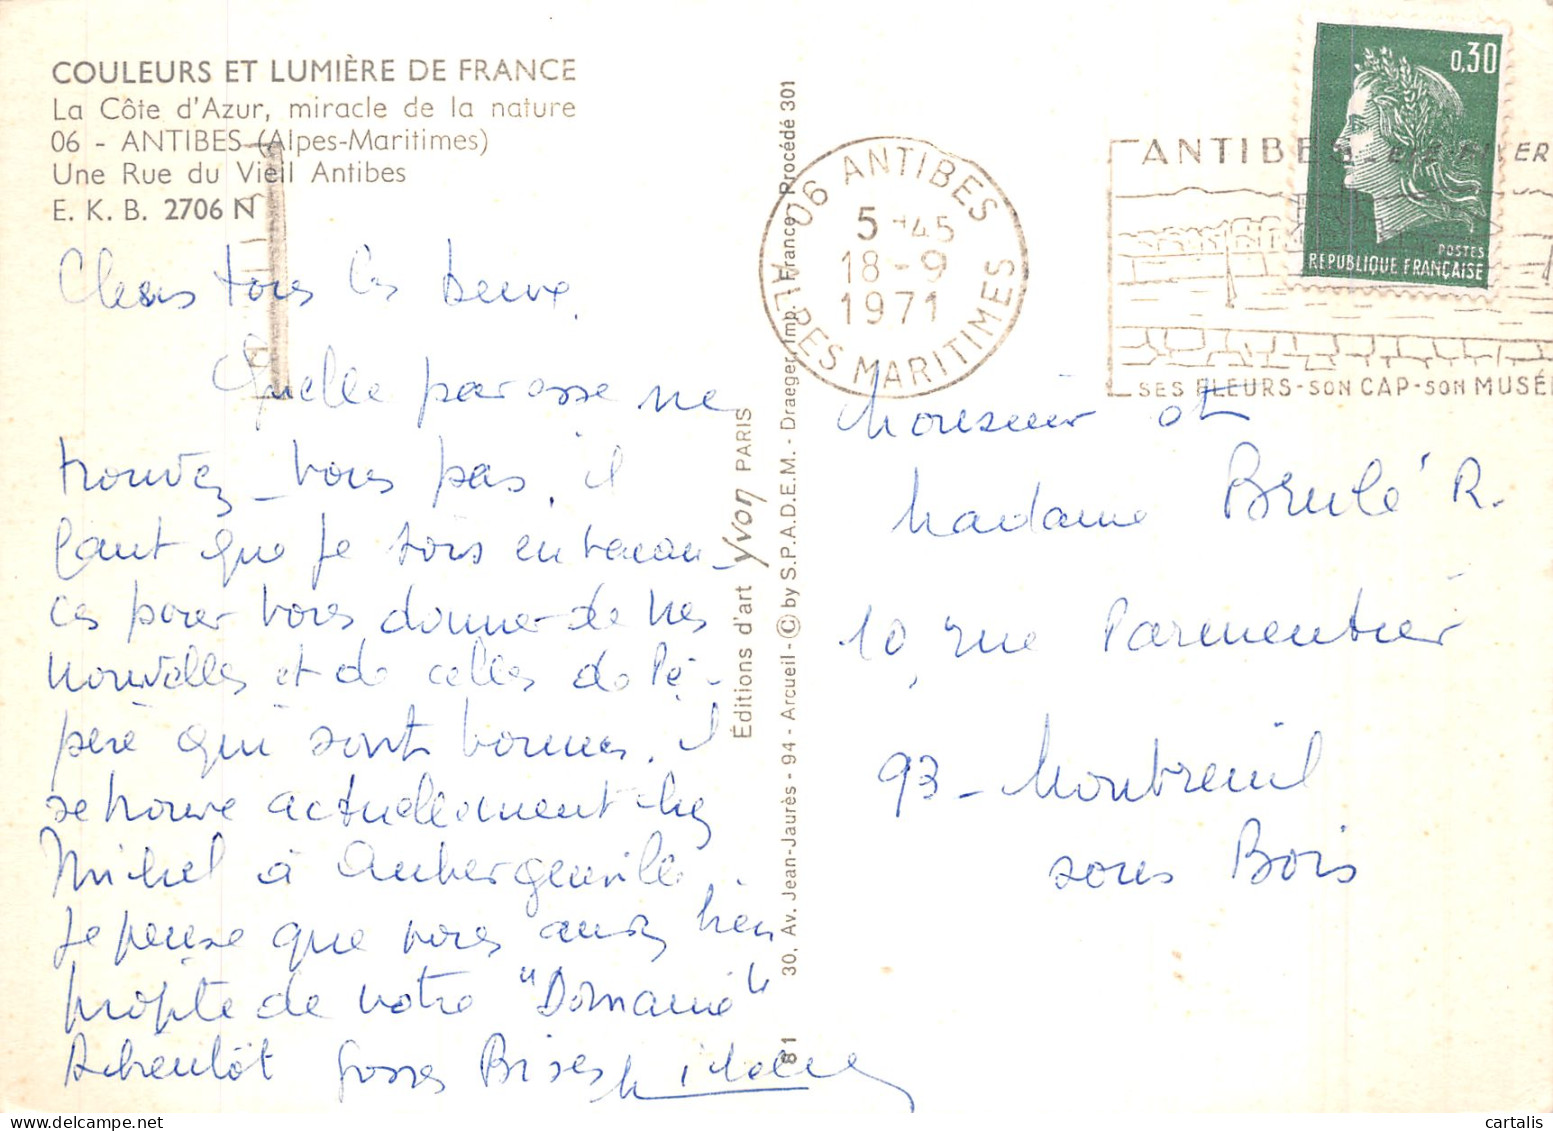 COULEURS ET LUMIÈRE DE FRANCE
La Côte d'Azur, miracle de la nature
06 - ANTIBES (Alpes-Maritimes)
Une Rue du Vieil Antibes
E. K. B. 2706 N
Chers tous les deux.
Quelle paresse ne
trouvez-vous pas, il
faut que je sois en vacan-
ces pour vous donner de mes
nouvelles et de celles de Pé-
père qui sont bonnes. il
se trouve actuellement chez
Michel à Aubergenville.
Je pense que vous avez bien
profité de votre "Domaine"
A bientôt Grosses Bises
Éditions d'art Yvon PARIS
81 30, Av. Jean-Jaurès - 94 - Arcueil - © by S.P.A.D.E.M. - Draeger, Imp. France Procédé 301
06 ANTIBES
5 H45
18 - 9
1971
ALPES MARITIMES
ANTIBES
SES FLEURS - SON CAP - SON MUSÉE
0,30
POSTES
REPUBLIQUE FRANÇAISE
Monsieur et
Madame Brulé R.
10, rue Parmentier
93 - Montreuil
sous Bois
cartalis